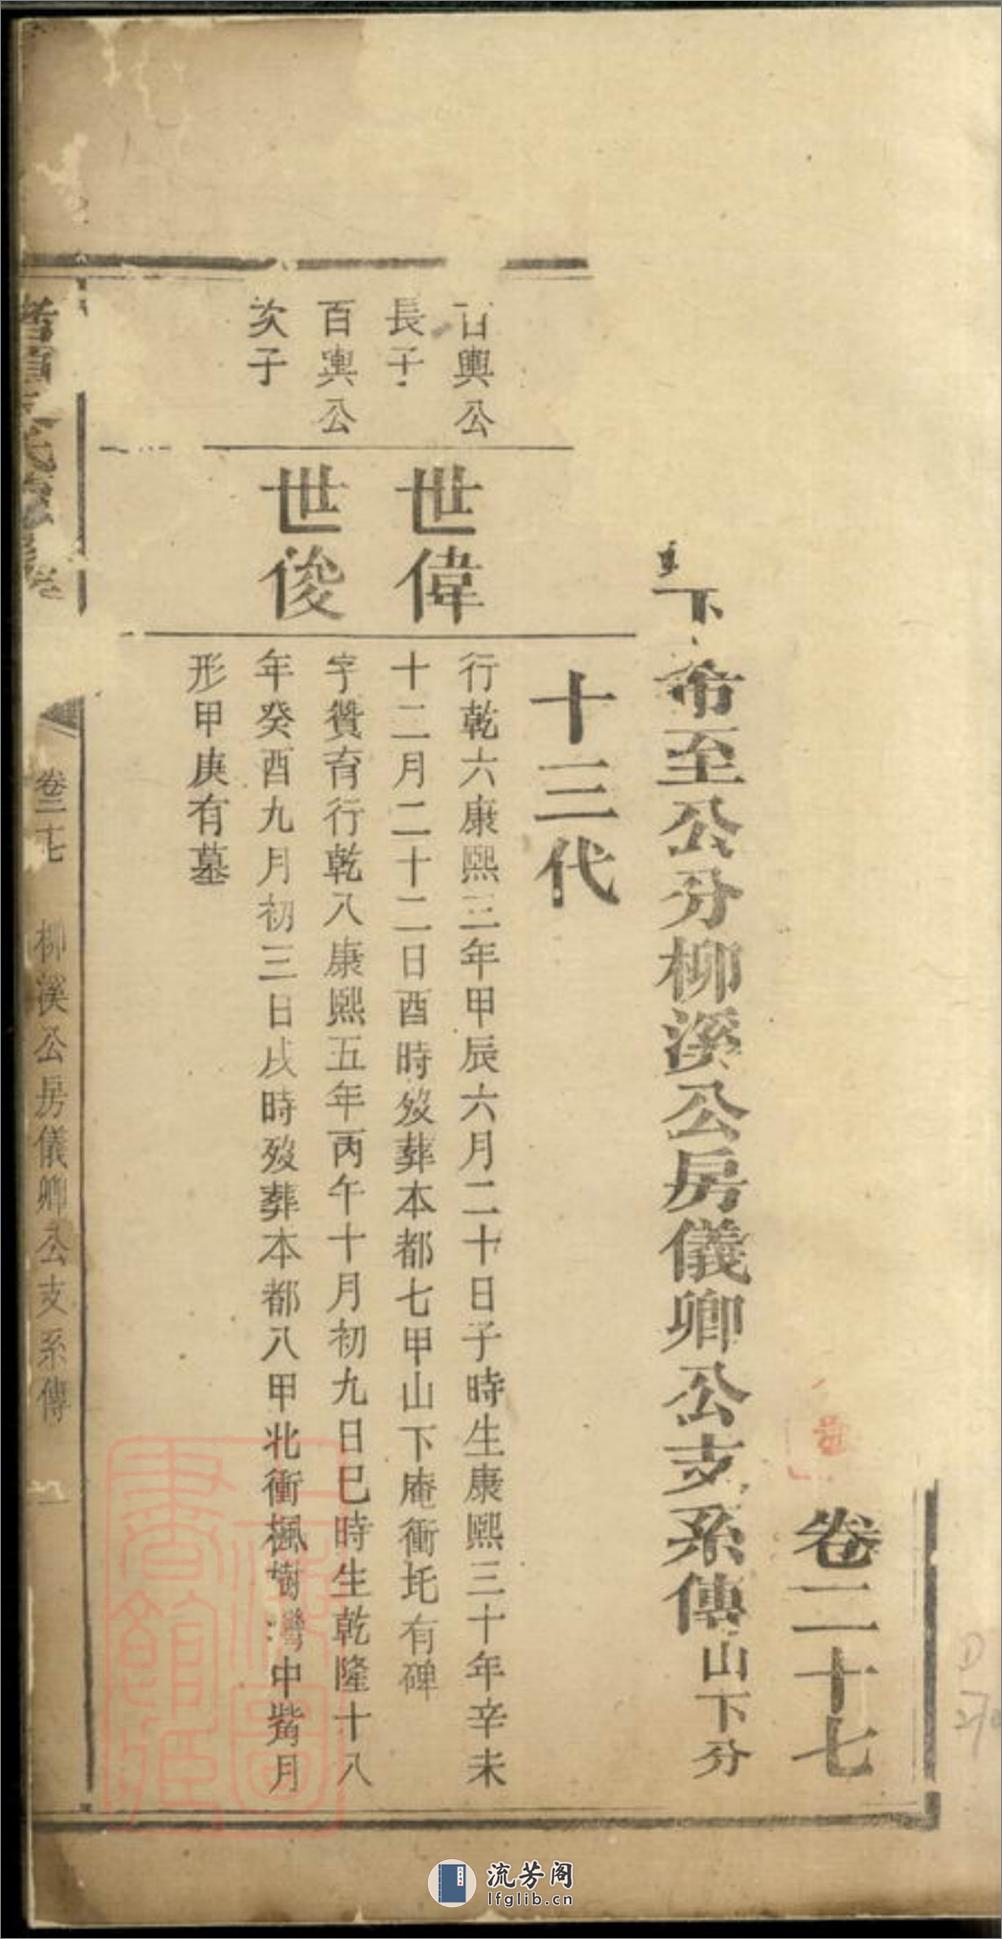 卷二十七
下 希至公分柳溪公房儀卿公支系傳山下分
十三代
百輿公
長子
世偉
行乾六康熙三年甲辰六月二十日子時生康熙三十年辛未
十二月二十二日酉時歿葬本都七甲山下庵衝坉有碑
百輿公
次子
世俊
字贊育行乾八康熙五年丙午十月初九日巳時生乾隆十八
年癸酉九月初三日戌時歿葬本都八甲北衝楓樹灣中嘴月
形甲庚有墓
卷二十七
柳溪公房儀卿公支系傳
一
流芳阁
lfglib.cn